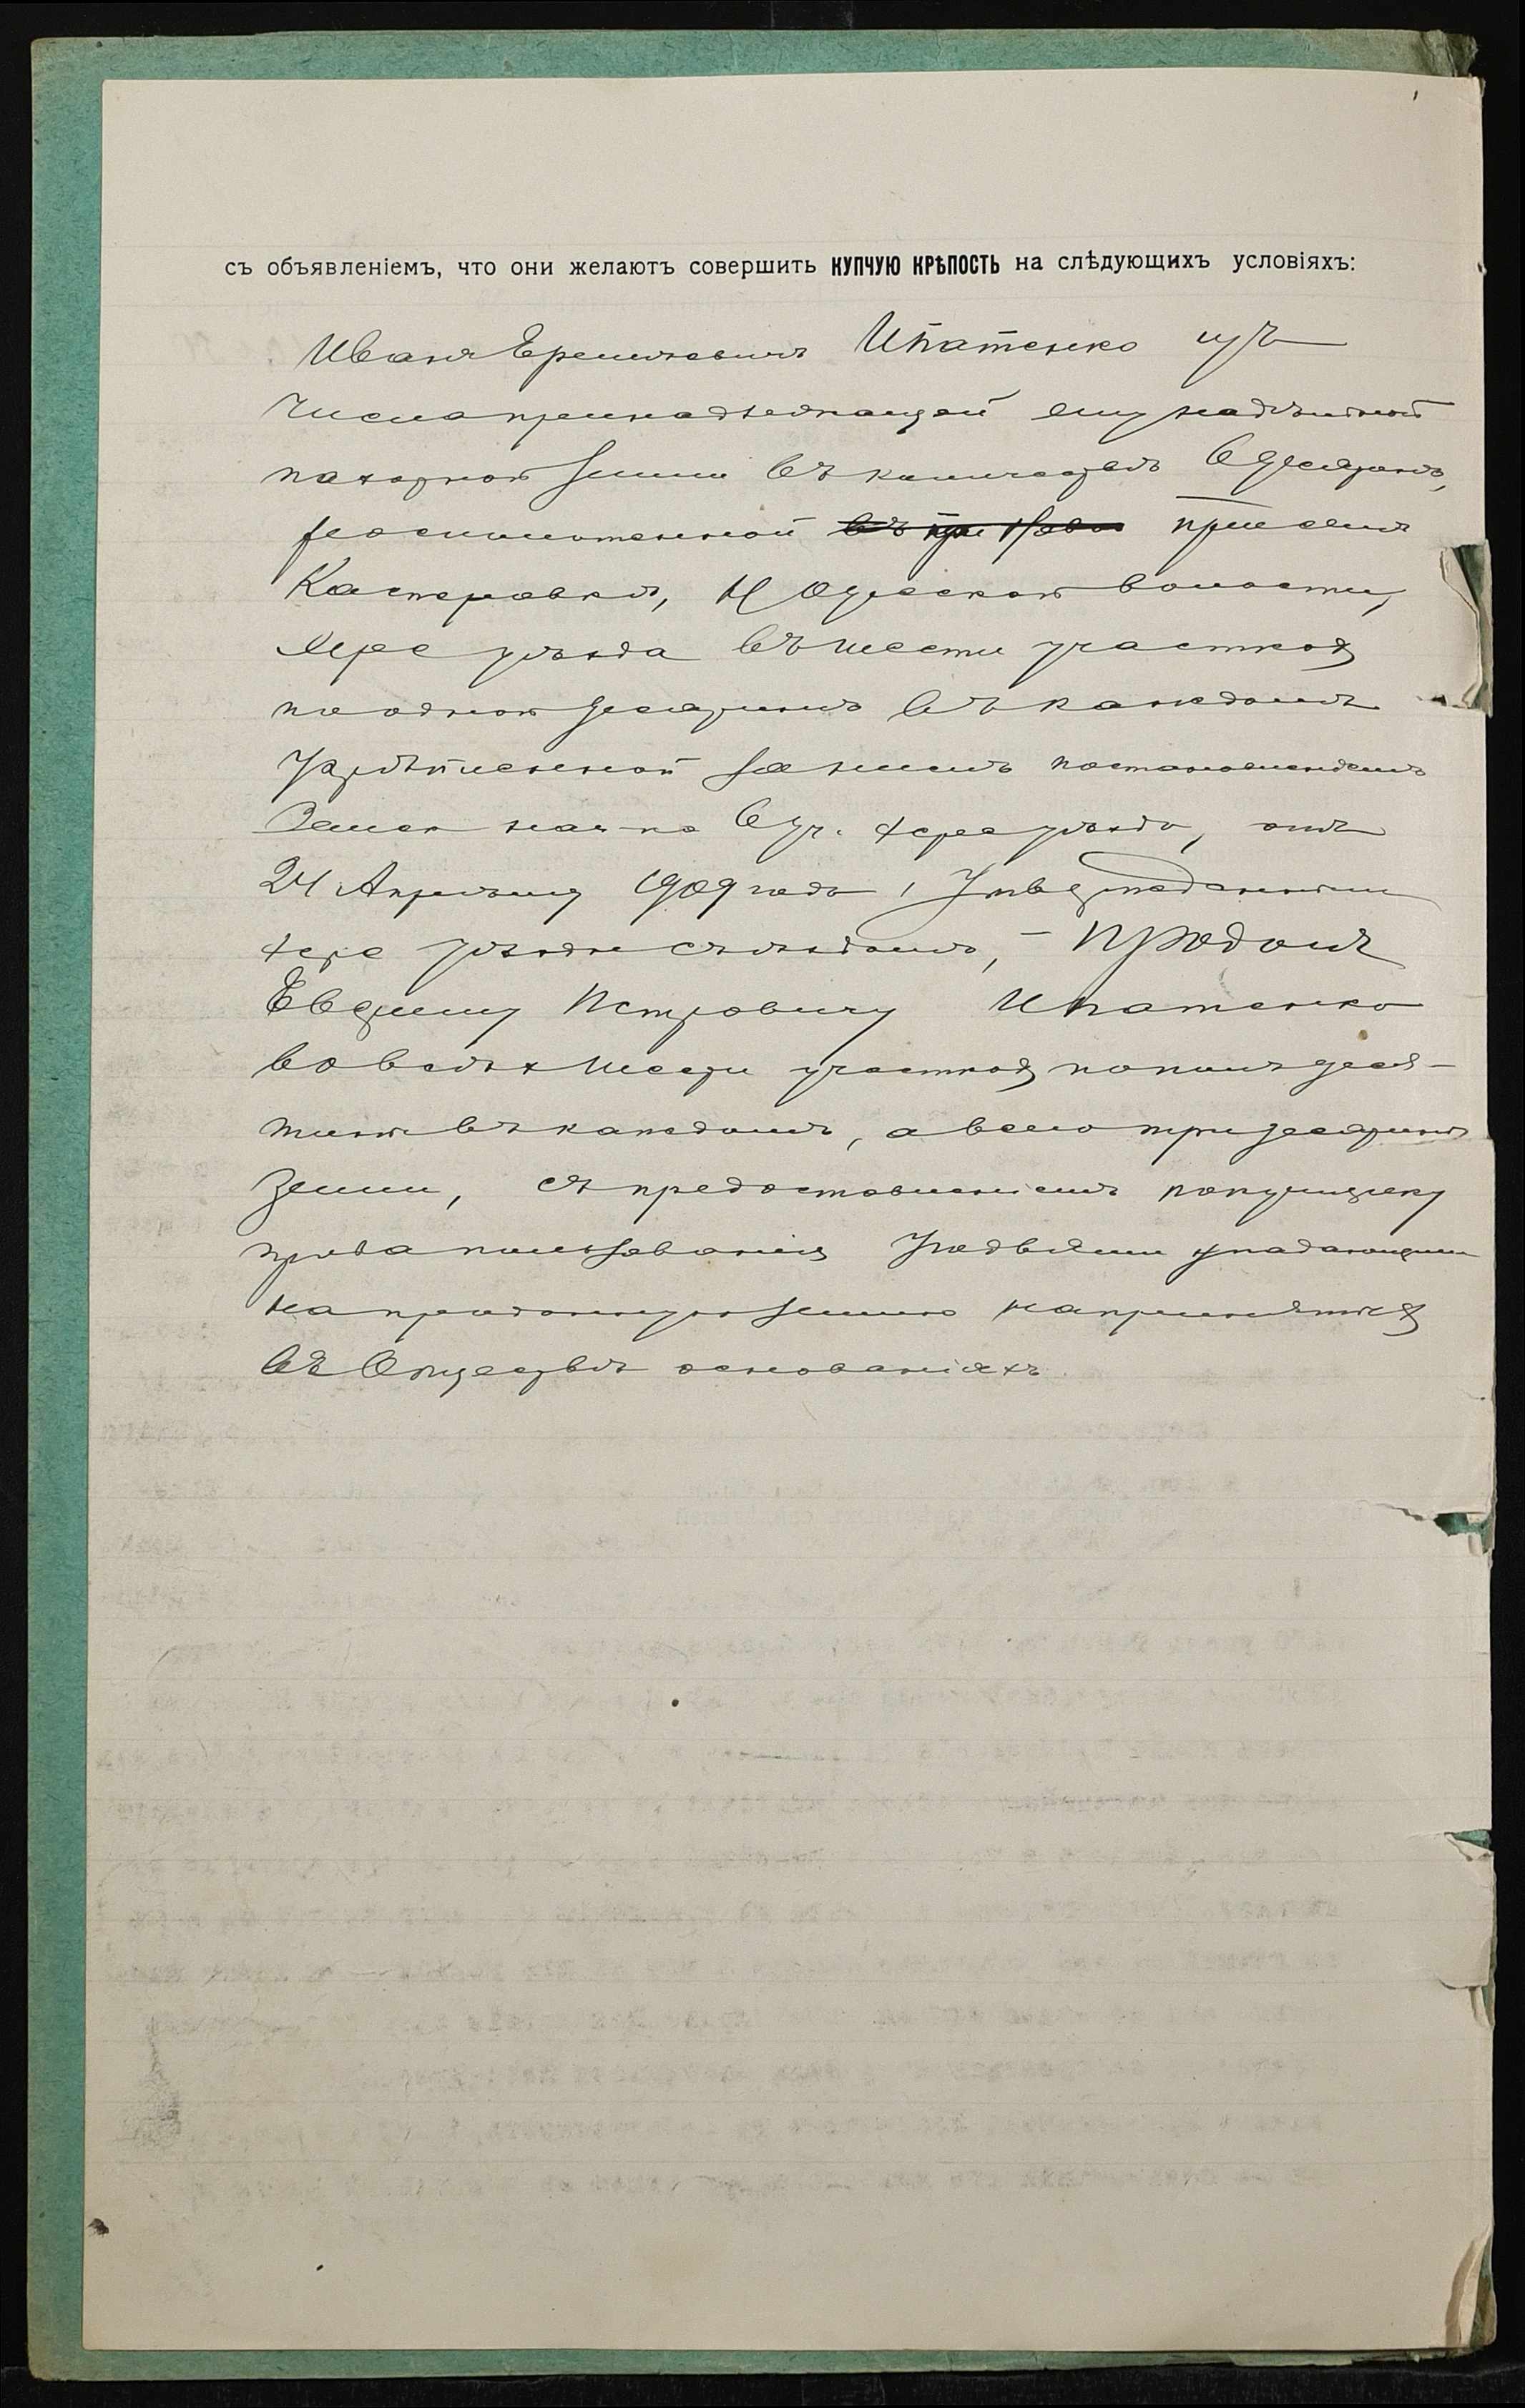 съ объявленіемъ, что они желаютъ совершить КУПЧУЮ КРѢПОСТЬ на слѣдующихъ условіяхъ:
Иванъ Еремѣевичъ Ипатенко изъ
числа принадлежащей ему надѣльной
пахотной земли въ количествѣ 6 десятинъ,
расположенной при селѣ
Касперовкѣ, волости,
Херс уѣзда въ шести участкахъ
по одной десятинѣ въ каждомъ
укрѣпленной за нимъ постановленіемъ
Земск нач-ка 6 уч. Херс уѣзда, отъ
24 Апрѣля 1909 года, утвержденнымъ
Херс уѣздн съѣздомъ, – продалъ
Петровичу Ипатенко
во всѣхъ шести участкахъ по полъ деся-
тинѣ въ каждомъ, а всего три десятины
земли, съ предоставленіемъ покупщику
права пользованія усадьбами упадающими
на проданную землю на принятыхъ
въ Обществѣ основаніяхъ.